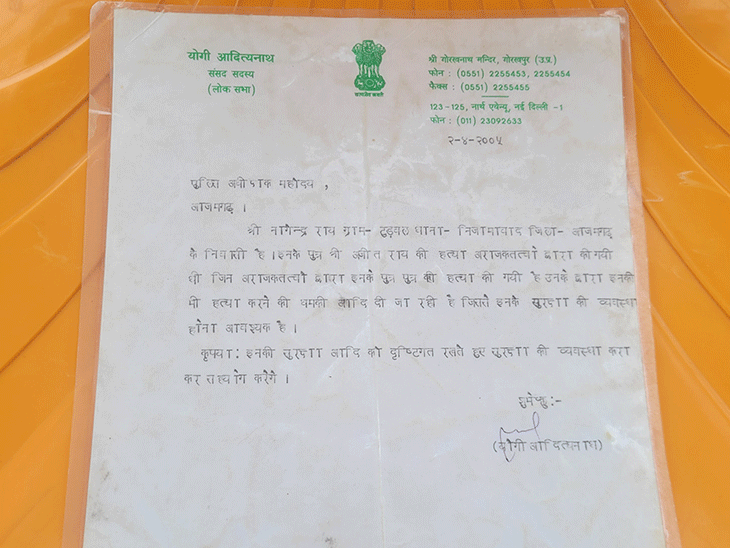 योगी आदित्यनाथ
संसद सदस्य
(लोक सभा)
सत्यमेव जयते
श्री गोरखनाथ मन्दिर, गोरखपुर (उ.प्र.)
फोन : (0551) 2255453, 2255454
फैक्स : (0551) 2255455
123-125, नार्थ एवेन्यू, नई दिल्ली -1
फोन : (011) 23092633
२-४-२००५
पुलिस अधीक्षक महोदय ,
आजमगढ़ ।
श्री नागेन्द्र राय ग्राम- थाना- निजामाबाद जिला- आजमगढ़
के निवासी है ।इनके पुत्र श्री अजीत राय की हत्या अराजकतत्वो द्वारा की गयी
थी जिन अराजकतत्वो द्वारा इनके पुत्र पुत्र की हत्या की गयी है उनके द्वारा इनकी
भी हत्या करने की धमकी आदि दी जा रही है जिससे इनके सुरक्षा की व्यवस्था
होना आवश्यक है ।
कृपया: इनकी सुरक्षा आदि को दृष्टिगत रखते हुए सुरक्षा की व्यवस्था करा
कर सहयोग करेगे ।
शुभेच्छु:-
(योगी आदित्यनाथ)